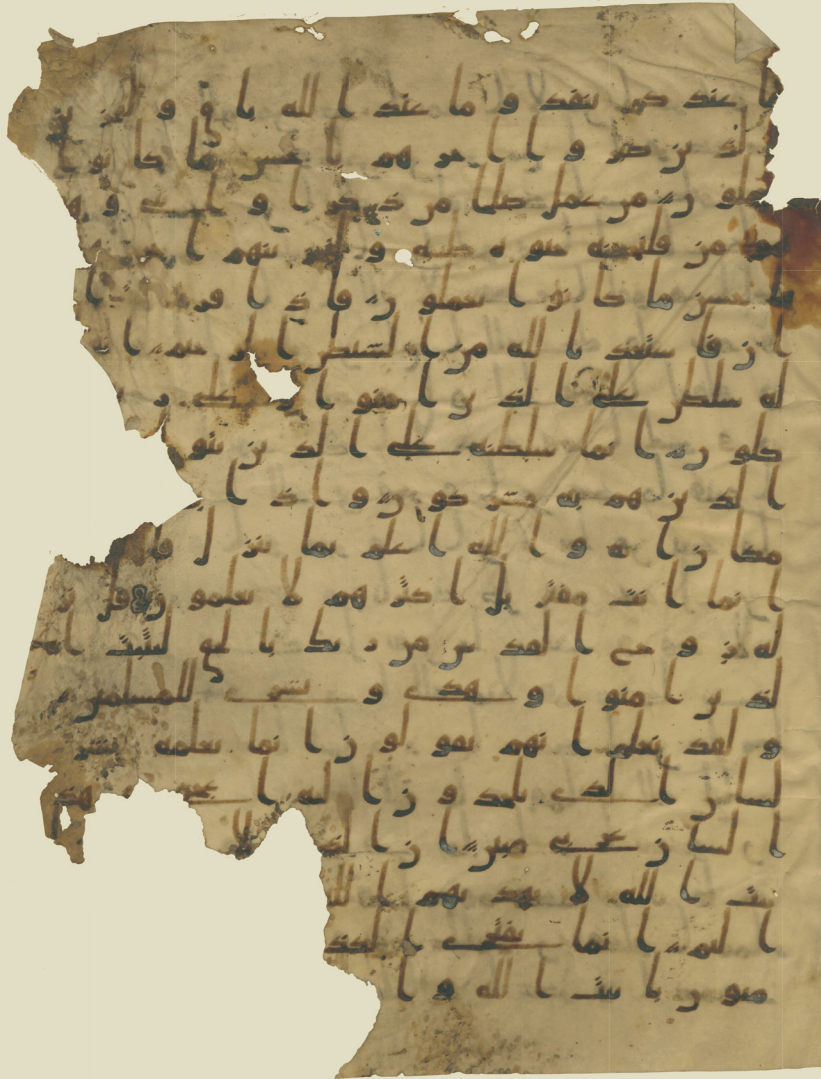 ما عندكم ينفد وما عند الله باق ولنجزين
لذين صبروا اجرهم باحسن ما كانوا
يعملون من عمل صلحا من ذكر او انثى وهو
مومن فلنحيينه حيوه طيبه ولنجزينهم اجرهم
باحسن ما كانوا يعملون فاذا قرات ا
ان فاستعذ بالله من الشيطن الرجيم انه
له سلطن على الذين امنوا وعلى
كلون انما سلطنه على الذين يتو
الذين هم به مشركون واذا
مكان ايه والله اعلم بما ينزل قا
انما انت مفتر بل اكثرهم لا يعلمون قل نز
له روح القدس من ربك بالحق ليثبت ا
لذين امنوا وهدى وبشرى للمسلمين
ولقد نعلم انهم يقولون انما يعلمه بشر
لسان الذي يلحدون اليه اعجمي وهذ
ا لسان عربي مبين ان الذين لا
بايت الله لا يهديهم الله
اليم انما يفتري الكذ
منون بايت الله وا